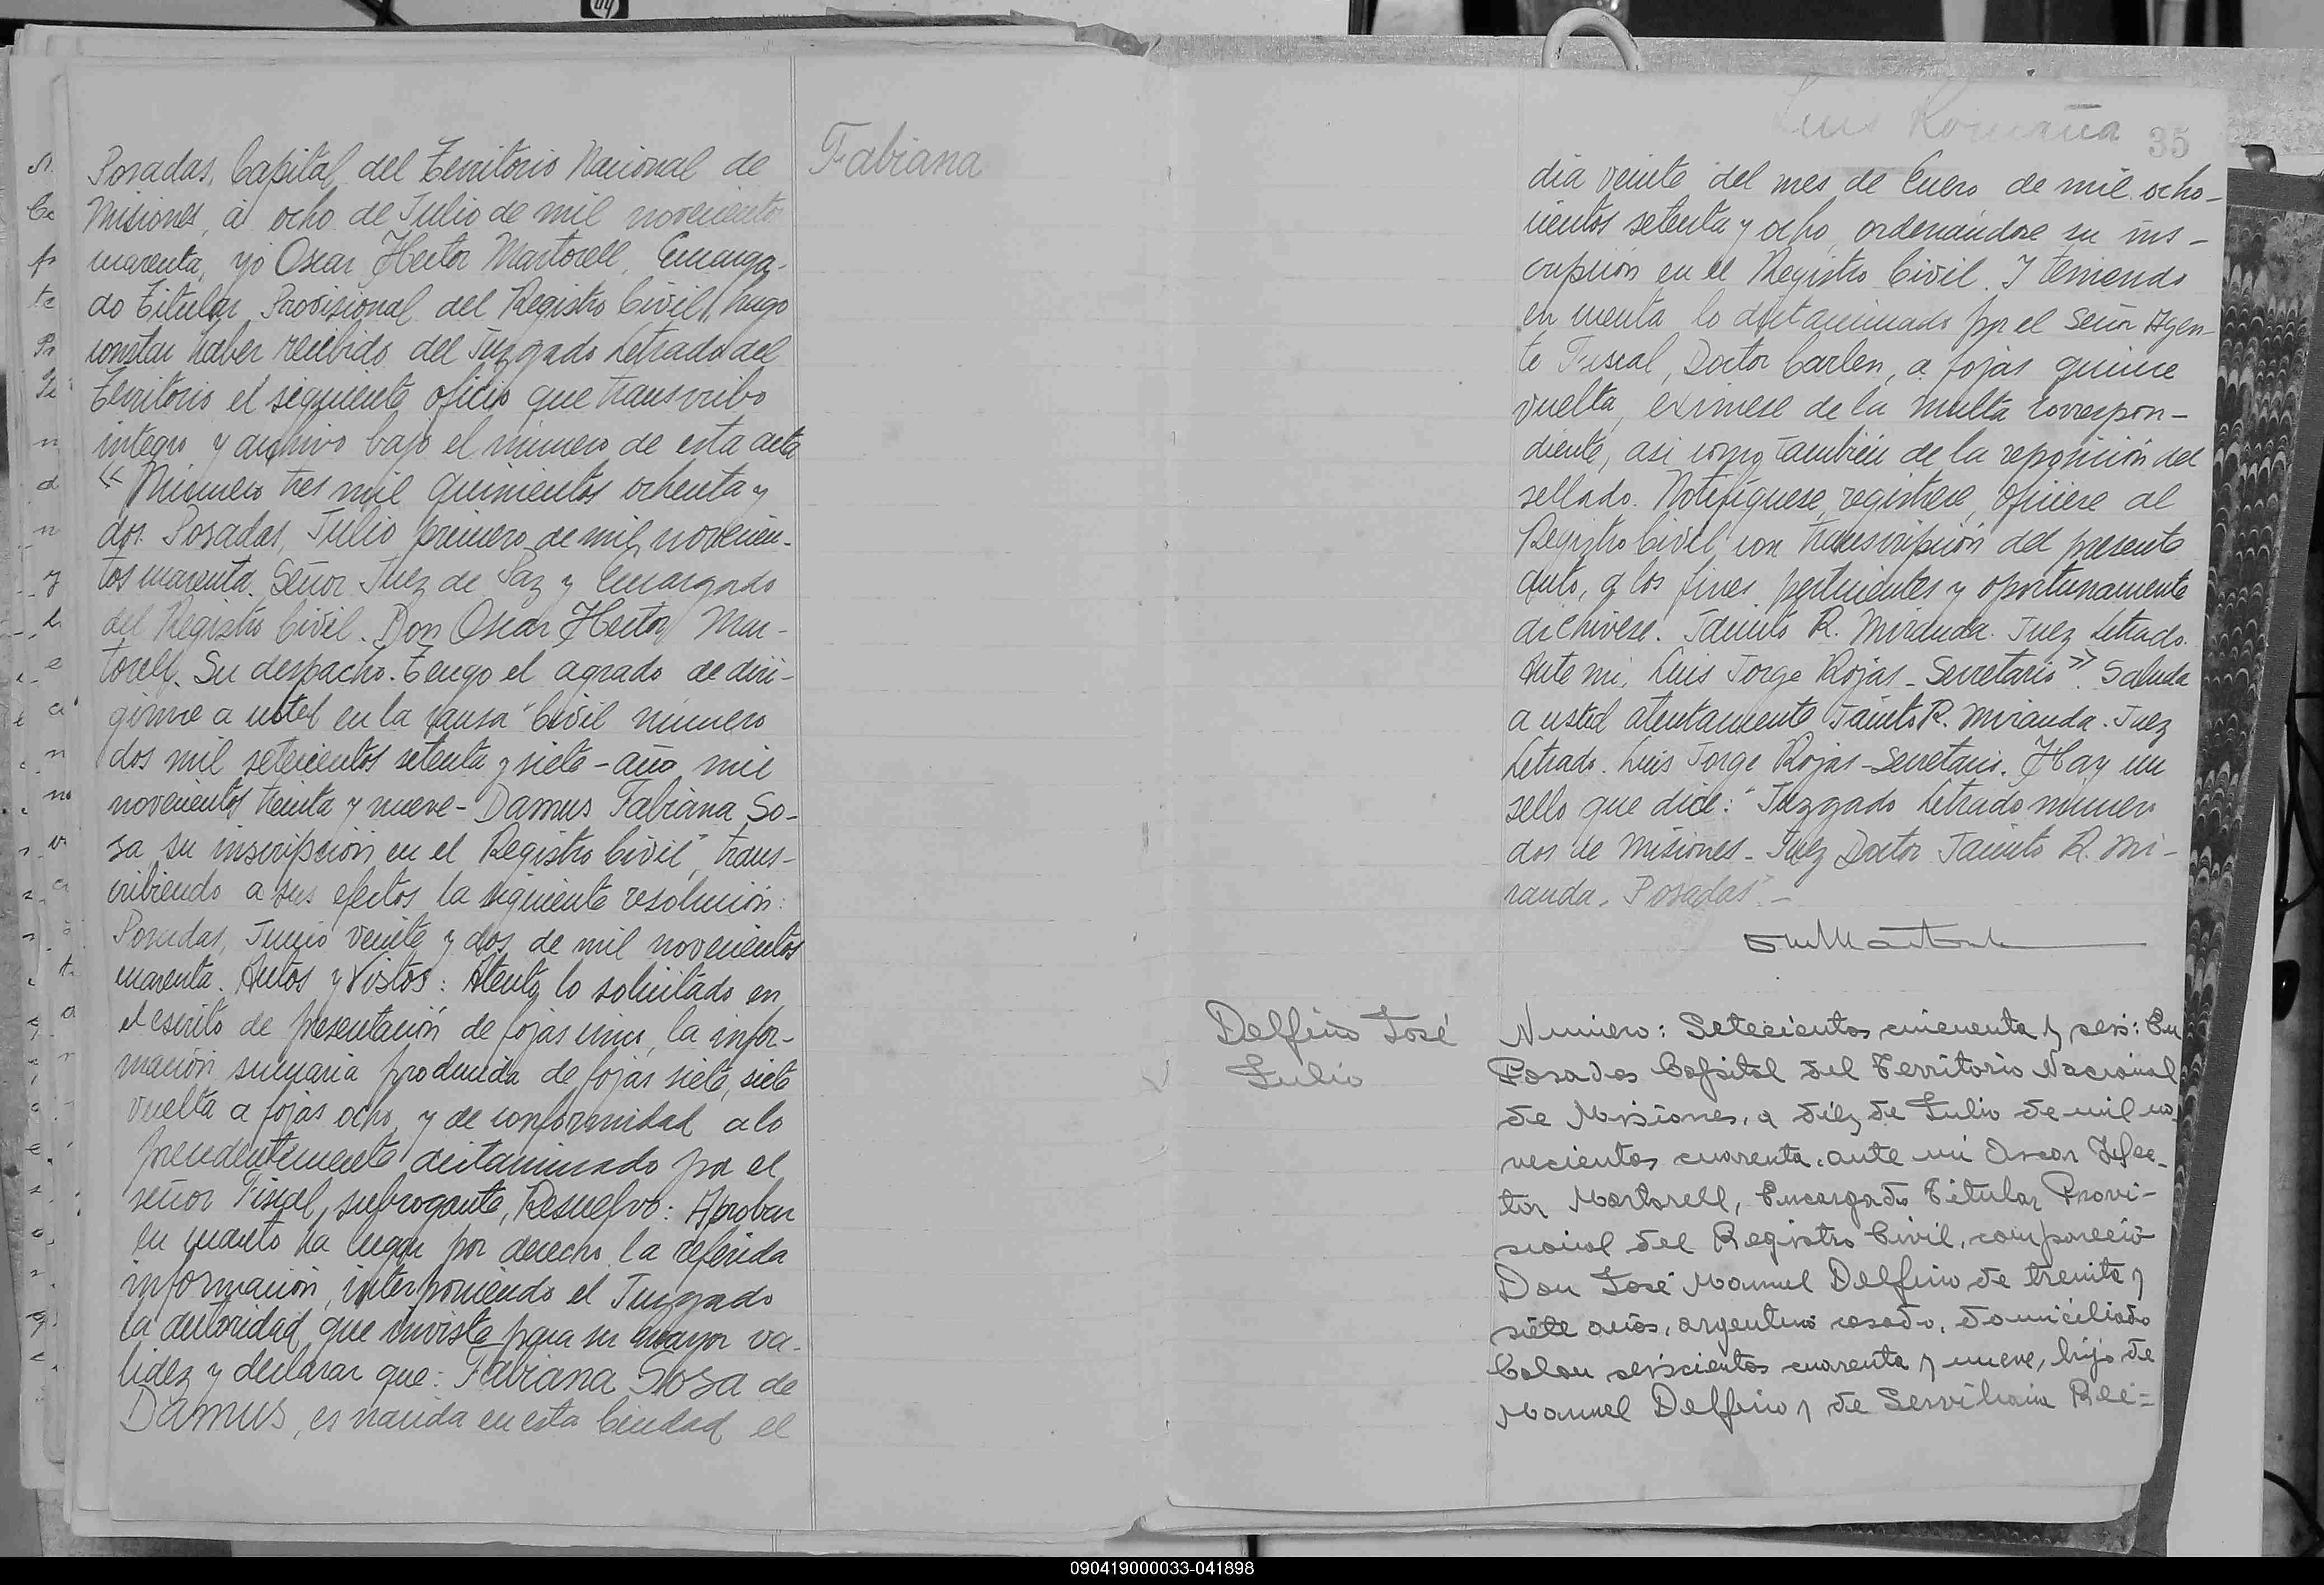 Posadas, Capital del Territorio Nacional de
Misiones, á ocho de Julio de mil novecientos
cuarenta, yo Oscar Hector Martorell, Encarga-
do Titular Provisional del Registro Civil, hago
constar haber recibido del Juzgado Letrado del
Territorio el siguiente oficio que transcribo
integro y archivo bajo el número de esta acta
"Número tres mil quinientos ochenta y
dos. Posadas, Julio primero de mil novecien-
tos cuarenta. Señor Juez de Paz y Encargado
del Registro Civil. Don Oscar Hector Mar-
torell. Su despacho. Tengo el agrado de diri-
girme a usted en la causa "Civil número
dos mil setecientos setenta y siete - año mil
novecientos treinta y nueve - Damus Fabiana So-
sa su inscripción en el Registro Civil", trans-
cribiendo a sus efectos la siguiente resolución:
Posadas, Junio veinte y dos de mil novecientos
cuarenta. Autos y Vistos: Atento lo solicitado en
el escrito de presentación de fojas cinco, la infor-
mación sumaria producida de fojas siete, siete
vuelta a fojas ocho, y de conformidad a lo
precedentemente dictaminado por el
señor Fiscal, subrogante, Resuelvo: Aprobar
en cuanto ha lugar por derecho la referida
información, interponiendo el Juzgado
la autoridad que inviste para su mayor va-
lidez y declarar que: Fabiana Sosa de
Damus, es nacida en esta Ciudad el
Fabiana
Luis Romaña 35
día veinte del mes de Enero de mil ocho-
cientos setenta y ocho, ordenándose su ins-
cripción en el Registro Civil. Y teniendo
en cuenta lo dictaminado por el señor Agen-
te Fiscal, Doctor Carlen, a fojas quince
vuelta, exímese de la multa correspon-
diente, así como también de la reposición del
sellado. Notifíquese, regístrese, ofíciese al
Registro Civil con transcripción del presente
auto, a los fines pertinentes y oportunamente
archívese. Jacinto R. Miranda. Juez Letrado.
Ante mi, Luis Jorge Rojas - Secretario". Saluda
a usted atentamente Jacinto R. Miranda. Juez
Letrado. Luis Jorge Rojas - Secretario. Hay un
sello que dice: "Juzgado Letrado número
dos de Misiones - Juez Doctor Jacinto R. Mi-
randa. Posadas" -
Delfino José
Julio
Numero: Setecientos cincuenta y seis: En
Posadas Capital del Territorio Nacional
de Misiones, a diéz de Julio de mil no-
vecientos cuarenta. ante mi Oscar Hec-
tor Martorell, Encargado Titular Provi-
sional del Registro Civil, compareció
Don José Manuel Delfino de treinta y
siete años, argentino casado, domiciliado
Colon seiscientos cuarenta y nueve, hijo de
Manuel Delfino y de Serviliana Rei=
090419000033-041898